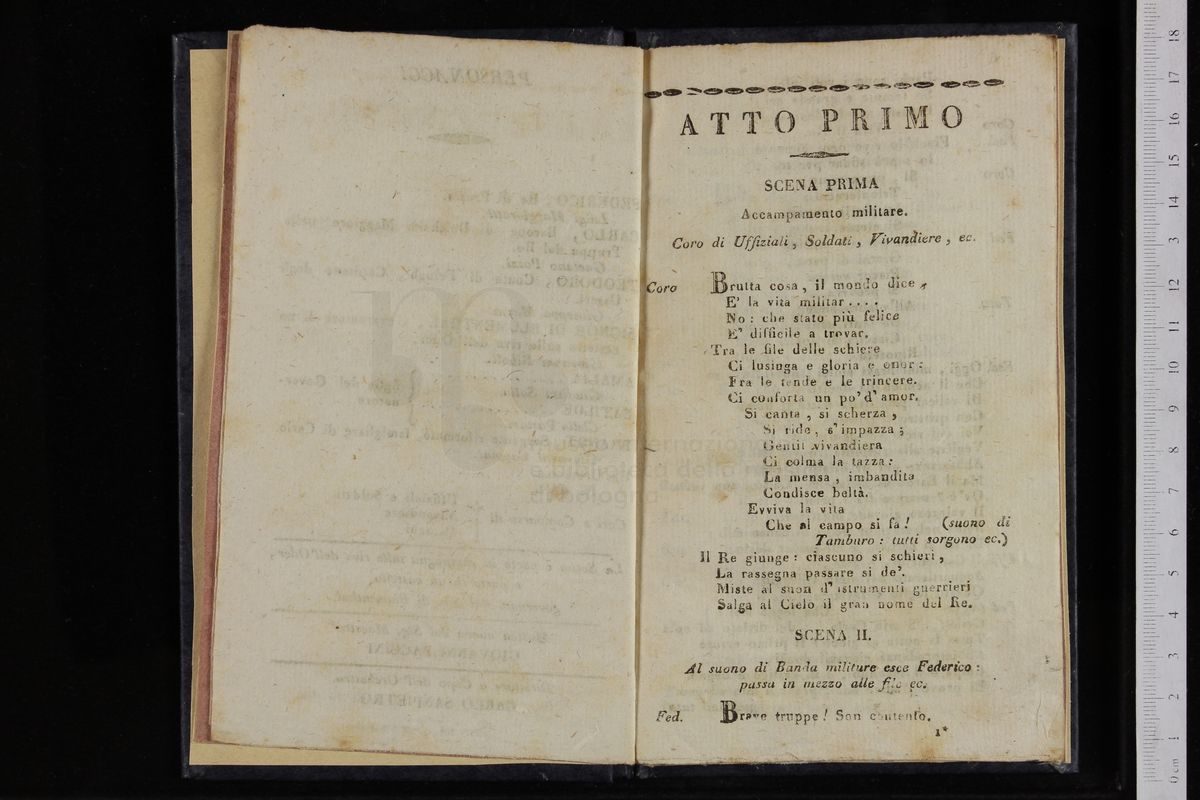 ATTO PRIMO
SCENA PRIMA
Accampamento militare.
Coro di Uffiziali, Soldati, Vivandiere, ec.
Coro Brutta cosa, il mondo dice,
E' la vita militar....
No: che stato più felice
E' difficile a trovar.
Tra le file delle schiere
Ci lusinga e gloria e onor:
Fra le tende e le trincere.
Ci conforta un po' d'amor.
Si canta, si scherza,
Si ride, s'impazza;
Gentil vivandiera
Ci colma la tazza:
La mensa, imbandita
Condisce beltà.
Evviva la vita
Che al campo si fa! (suono di
Tamburo: tutti sorgono ec.)
Il Re giunge: ciascuno si schieri,
La rassegna passare si de'.
Miste al suon d'istrumenti guerrieri
Salga al Cielo il gran nome del Re.
SCENA II.
Al suono di Banda militare esce Federico:
passa in mezzo alle file ec.
Fed. Brave truppe! Son contento.
1*